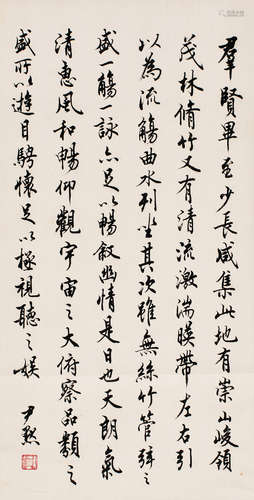 羣賢畢至少長咸集此地有崇山峻領
茂林脩竹又有清流激湍暎帶左右引
以為流觴曲水列坐其次雖無絲竹管弦之
盛一觴一詠亦足以暢敘幽情是日也天朗氣
清惠風和暢仰觀宇宙之大俯察品類之
盛所以遊目騁懷足以極視聽之娛
尹默